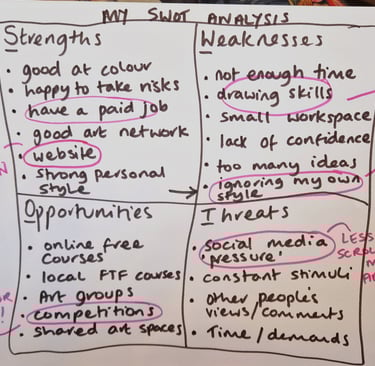 MY SWOT ANALYSIS
Strengths
• good at colour
• happy to take risks
• have a paid job
• good art network
• website
• strong personal
style
Weaknesses
• not enough time
• drawing skills
• small workspace
• lack of confidence
• too many ideas
• ignoring my own
style
Opportunities
• online free
courses
• local FTF courses
• Art groups
• competitions
• shared art spaces
Threats
• social media
'pressure'
• constant stimuli
• Other people's
views/comments
• Time/demands
LESS